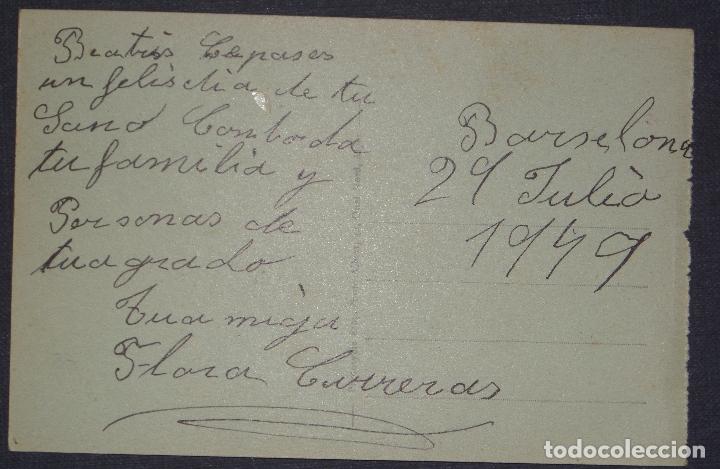 Beatris Cepases
un felis dia de tu
Sano Comboda
tu familia y
Personas de
tuagrado
tua miga
Flora Curreras
Barselona
29 Julio
1949
todocoleccion.net